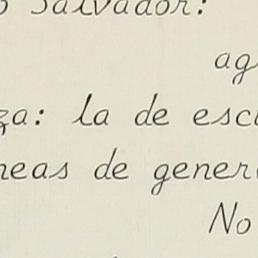 o Salvador:
ag
za: la de escu
neas de gener
No